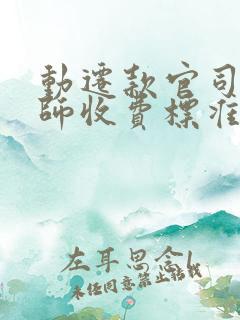 動遷款官司
師收費標准
左耳思念l
未任同意禁止搭我